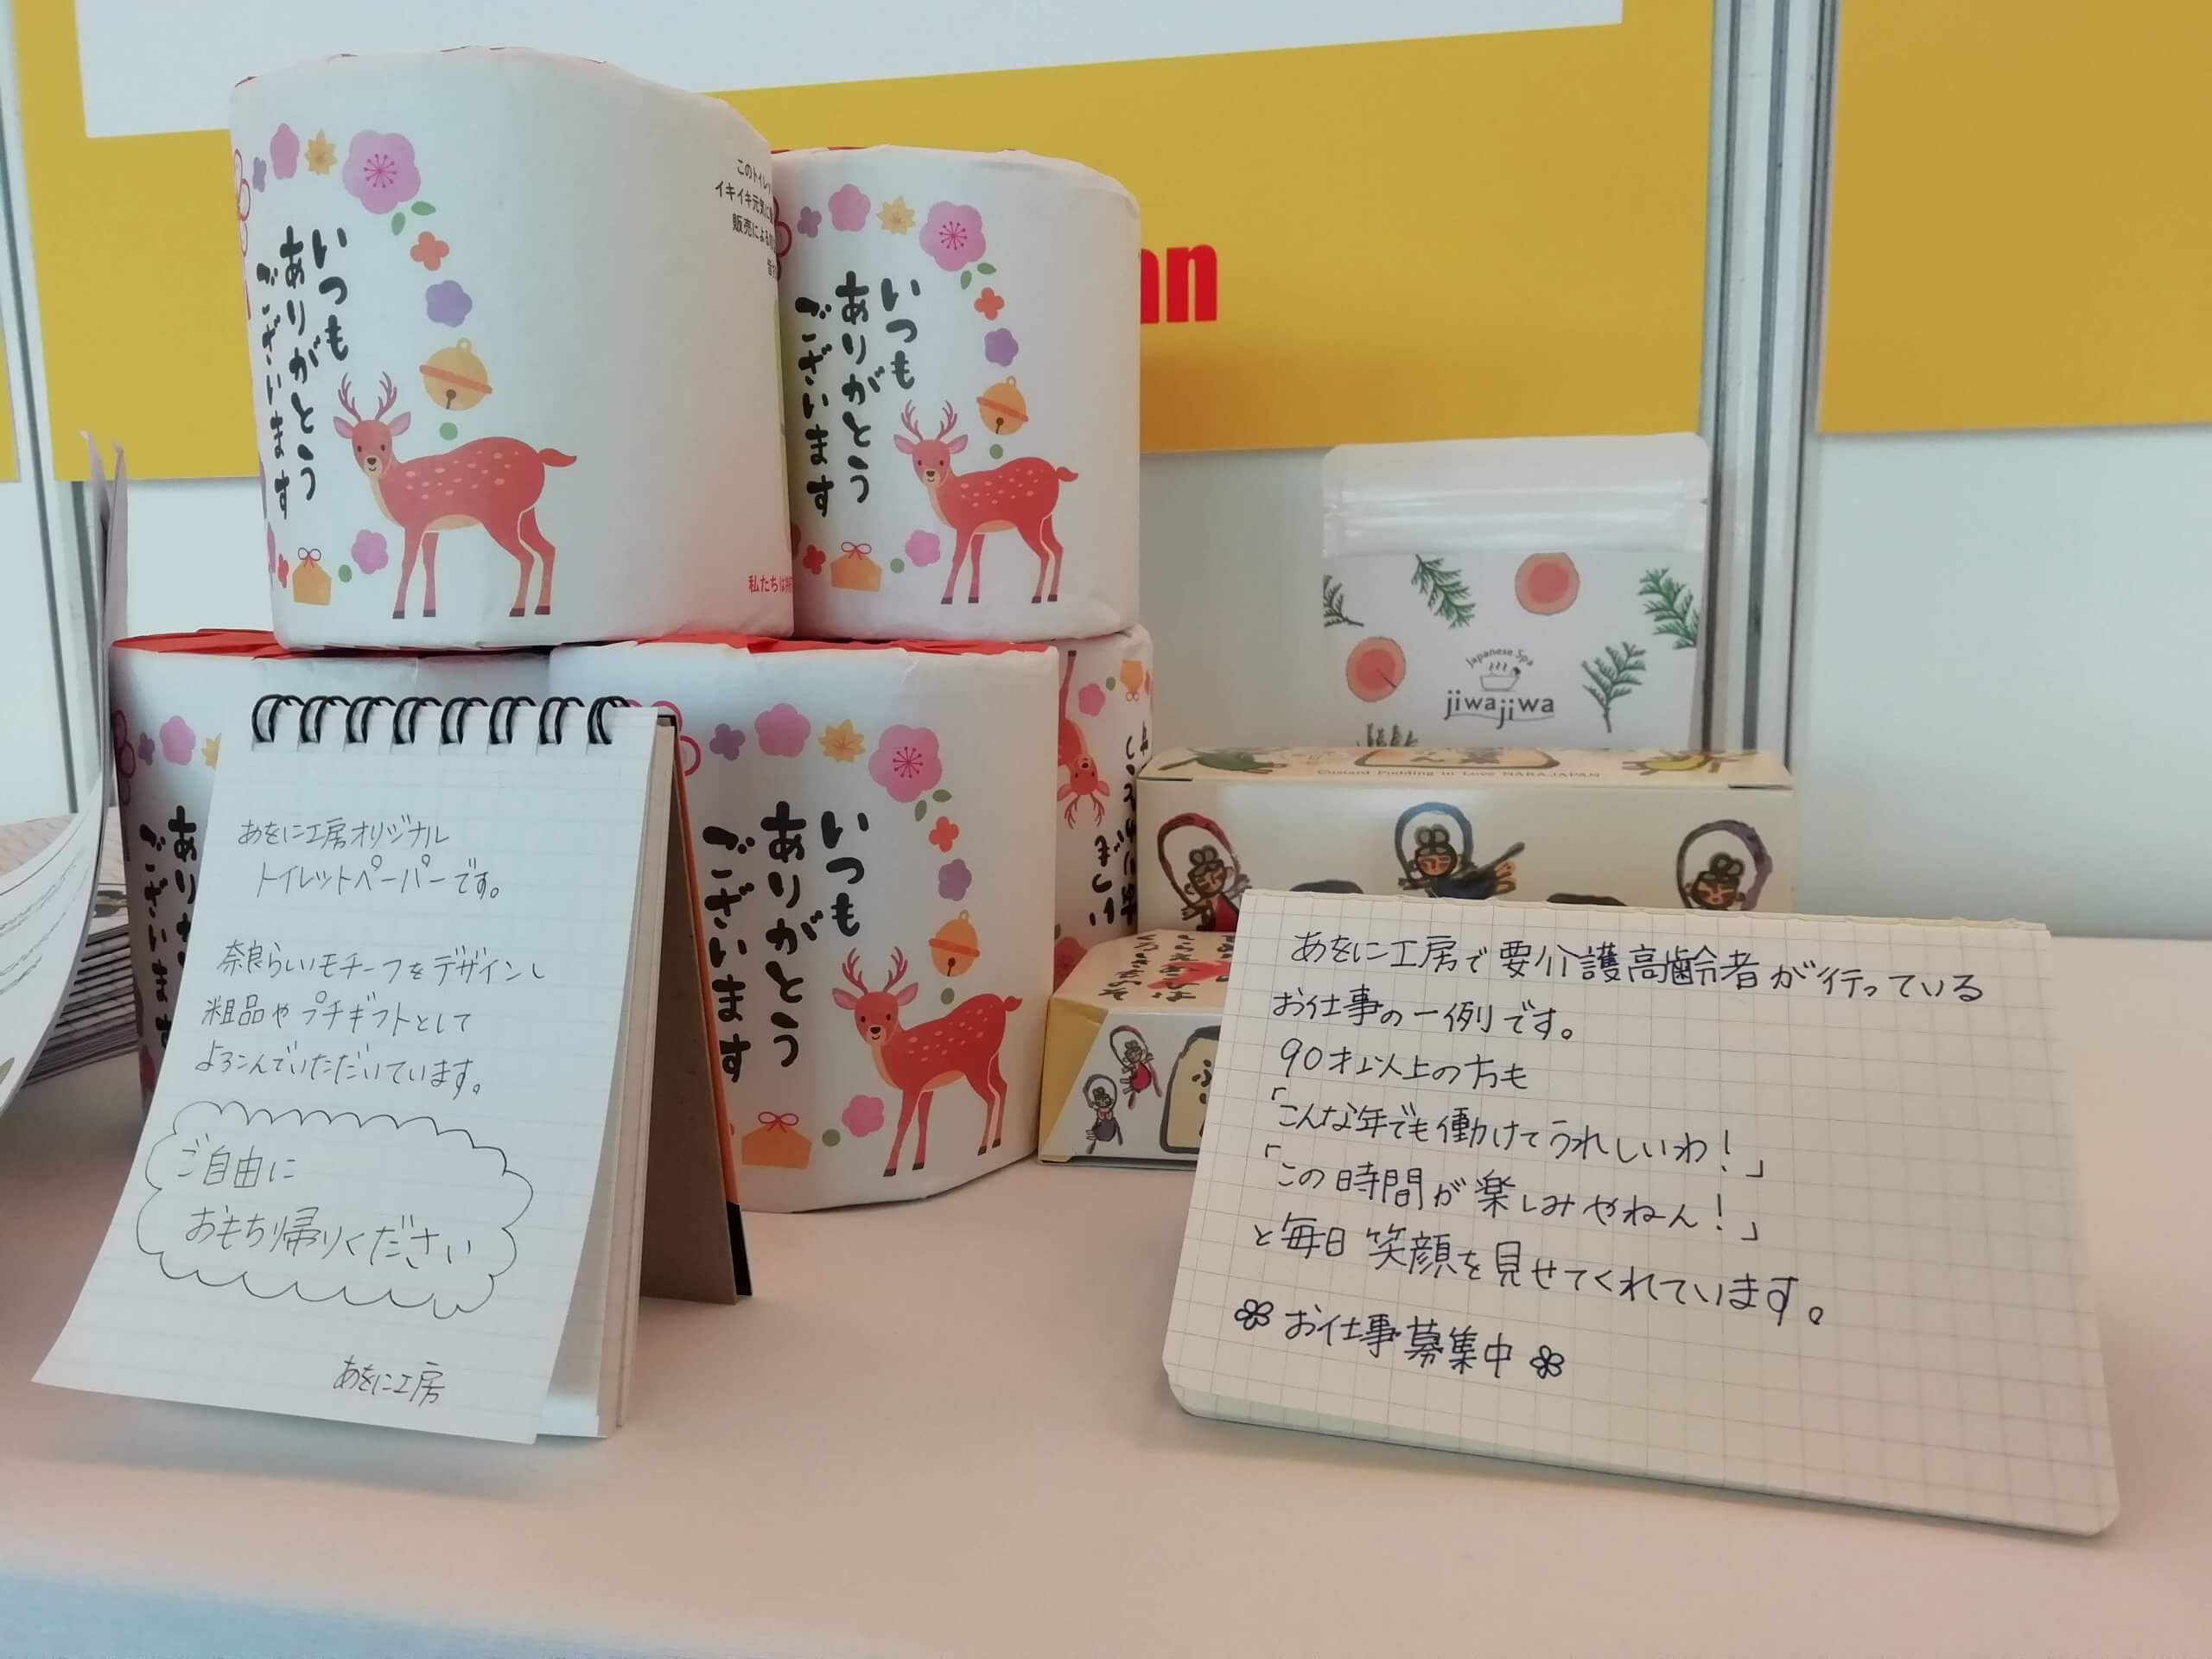 いつも
ありがとう
ございます
このトイレッ
イキイキ元気に
販売による
私たちは
いつも
ありがとう
ございます
an
Japanese Spa
jiwajiwa
Custard Pudding in Love NARA-JAPAN
あり
ございます
いつも
ありがとう
ございます
あをに工房オリジナル
トイレットペーパーです。
奈良らしいモチーフをデザインし
粗品やプチギフトとして
よろこんでいただいています。
ご自由に
おもち帰りください
あをに工房
あをに工房で要介護高齢者が行っている
お仕事の一例です。
90才以上の方も
「こんな年でも働けてうれしいわ!」
「この時間が楽しみやねん!」
と毎日笑顔を見せてくれています。
お仕事募集中